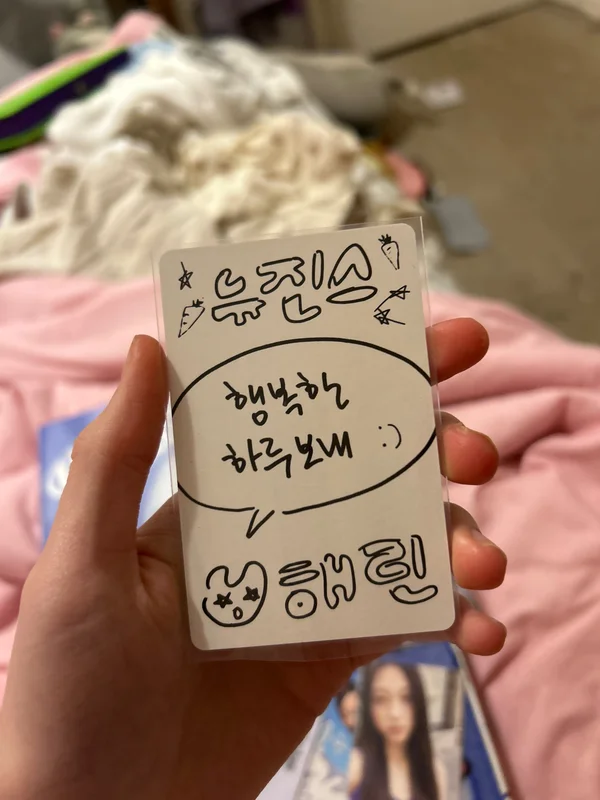 뉴진스
행복한
하루보내 :)
해린